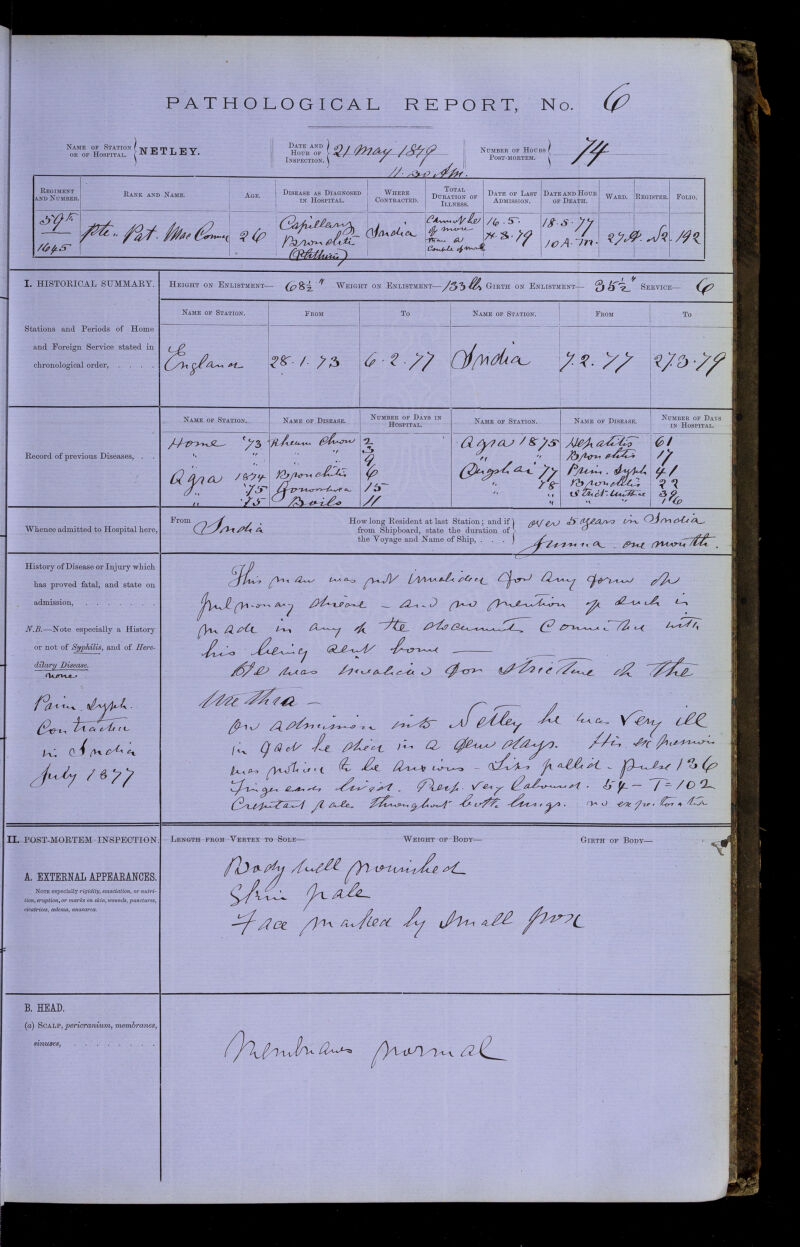 PATHOLOGICAL REPORT, No. 6
NAME OF STATION OR OF HOSPITAL. NETLEY.
DATE AND HOUR OF INSPECTION, 21 May 1879
11.30 A.M.
NUMBER OF HOURS POST-MORTEM. 74
REGIMENT AND NUMBER. RANK AND NAME. AGE. DISEASE AS DIAGNOSED IN HOSPITAL. WHERE CONTRACTED. TOTAL DURATION OF ILLNESS. DATE OF LAST ADMISSION. DATE AND HOUR OF DEATH. WARD. REGISTER. FOLIO.
59th Pte. Pat. Mac Connen 26 Capillary India Cannot be 16.5. 18.5.77
1645 Bronchitis of more 79 10 A.M. 27 192
(Phthisis) than a
couple of
I. HISTORICAL SUMMARY. HEIGHT ON ENLISTMENT— 68½" WEIGHT ON ENLISTMENT— 133 lbs GIRTH ON ENLISTMENT— 35½" SERVICE— 6
NAME OF STATION. FROM TO NAME OF STATION. FROM TO
Stations and Periods of Home
and Foreign Service stated in
chronological order, . . . .
England 28.1.73 6.2.77 India 7.2.77 27.3.79
NAME OF STATION. NAME OF DISEASE. NUMBER OF DAYS IN HOSPITAL. NAME OF STATION. NAME OF DISEASE. NUMBER OF DAYS IN HOSPITAL.
Record of previous Diseases, . .
Home '73 Rheum Chron 2 Agra 1875 Hepatitis 61
" " " " 3 " " Bronchitis 17
" " " 9 77 Prim. Syph 41
Agra 1874 Bronchitis 6 " 78 Bronchitis 22
" '75 Gonorrhoea 15 " " Strict. Urethrae 36
" '75 Boils 11 " " " 16
Whence admitted to Hospital here, From India
How long Resident at last Station; and if from Shipboard, state the duration of the Voyage and Name of Ship, . . . over 5 years in India
Jumna - one month.
History of Disease or Injury which
has proved fatal, and state on
admission, . . . . . . . .
N.B.—Note especially a History
or not of Syphilis, and of Here-
ditary Disease.
none
Prim. Syph.
Contracted
in India
July 1877
This man was not invalided for any form of
pulmonary disease - and no mention of such is
made in any of the documents connected with
his being sent home —
He was invalided for stricture of the
Urethra —
On admission into Netley he was very ill
in fact he died in a few days. His expression
was noticed to be anxious - Lips pallid - pulse 136
Finger ends livid. Resp. very laboured. 54 - T = 102
Crepitant rales throughout both lungs. no expectoration
II. POST-MORTEM INSPECTION: LENGTH FROM VERTEX TO SOLE— WEIGHT OF BODY— GIRTH OF BODY—
A. EXTERNAL APPEARANCES.
NOTE especially rigidity, emaciation, or nutri-
tion, eruption, or marks on skin, wounds, punctures,
cicatrices, œdema, anasarca.
Body well nourished
Skin pale
Face marked by small pox
B. HEAD.
(a) SCALP, pericranium, membranes,
sinuses, . . . . . . . .
Membranes normal